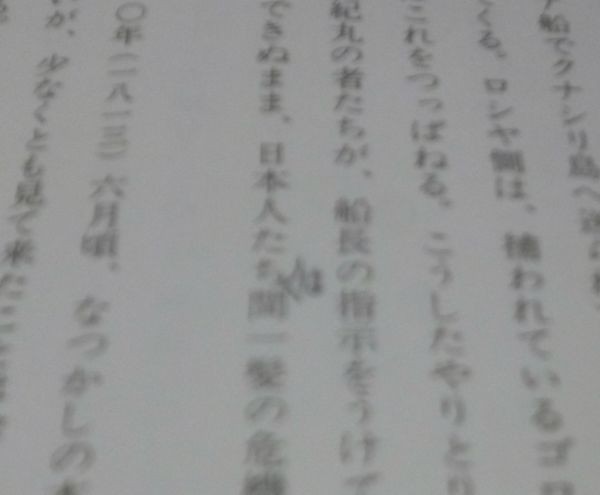 船でクナシリ島へ送られ、
くる。ロシヤ側は、捕われているゴロ
これをつっぱねる。こうしたやりとり
紀丸の者たちが、船長の指示をうけて
できぬまま、日本人たち
は
間一髪の危機
〇年(一八一三)六月頃、なつかしの
が、少なくとも見て来たこと